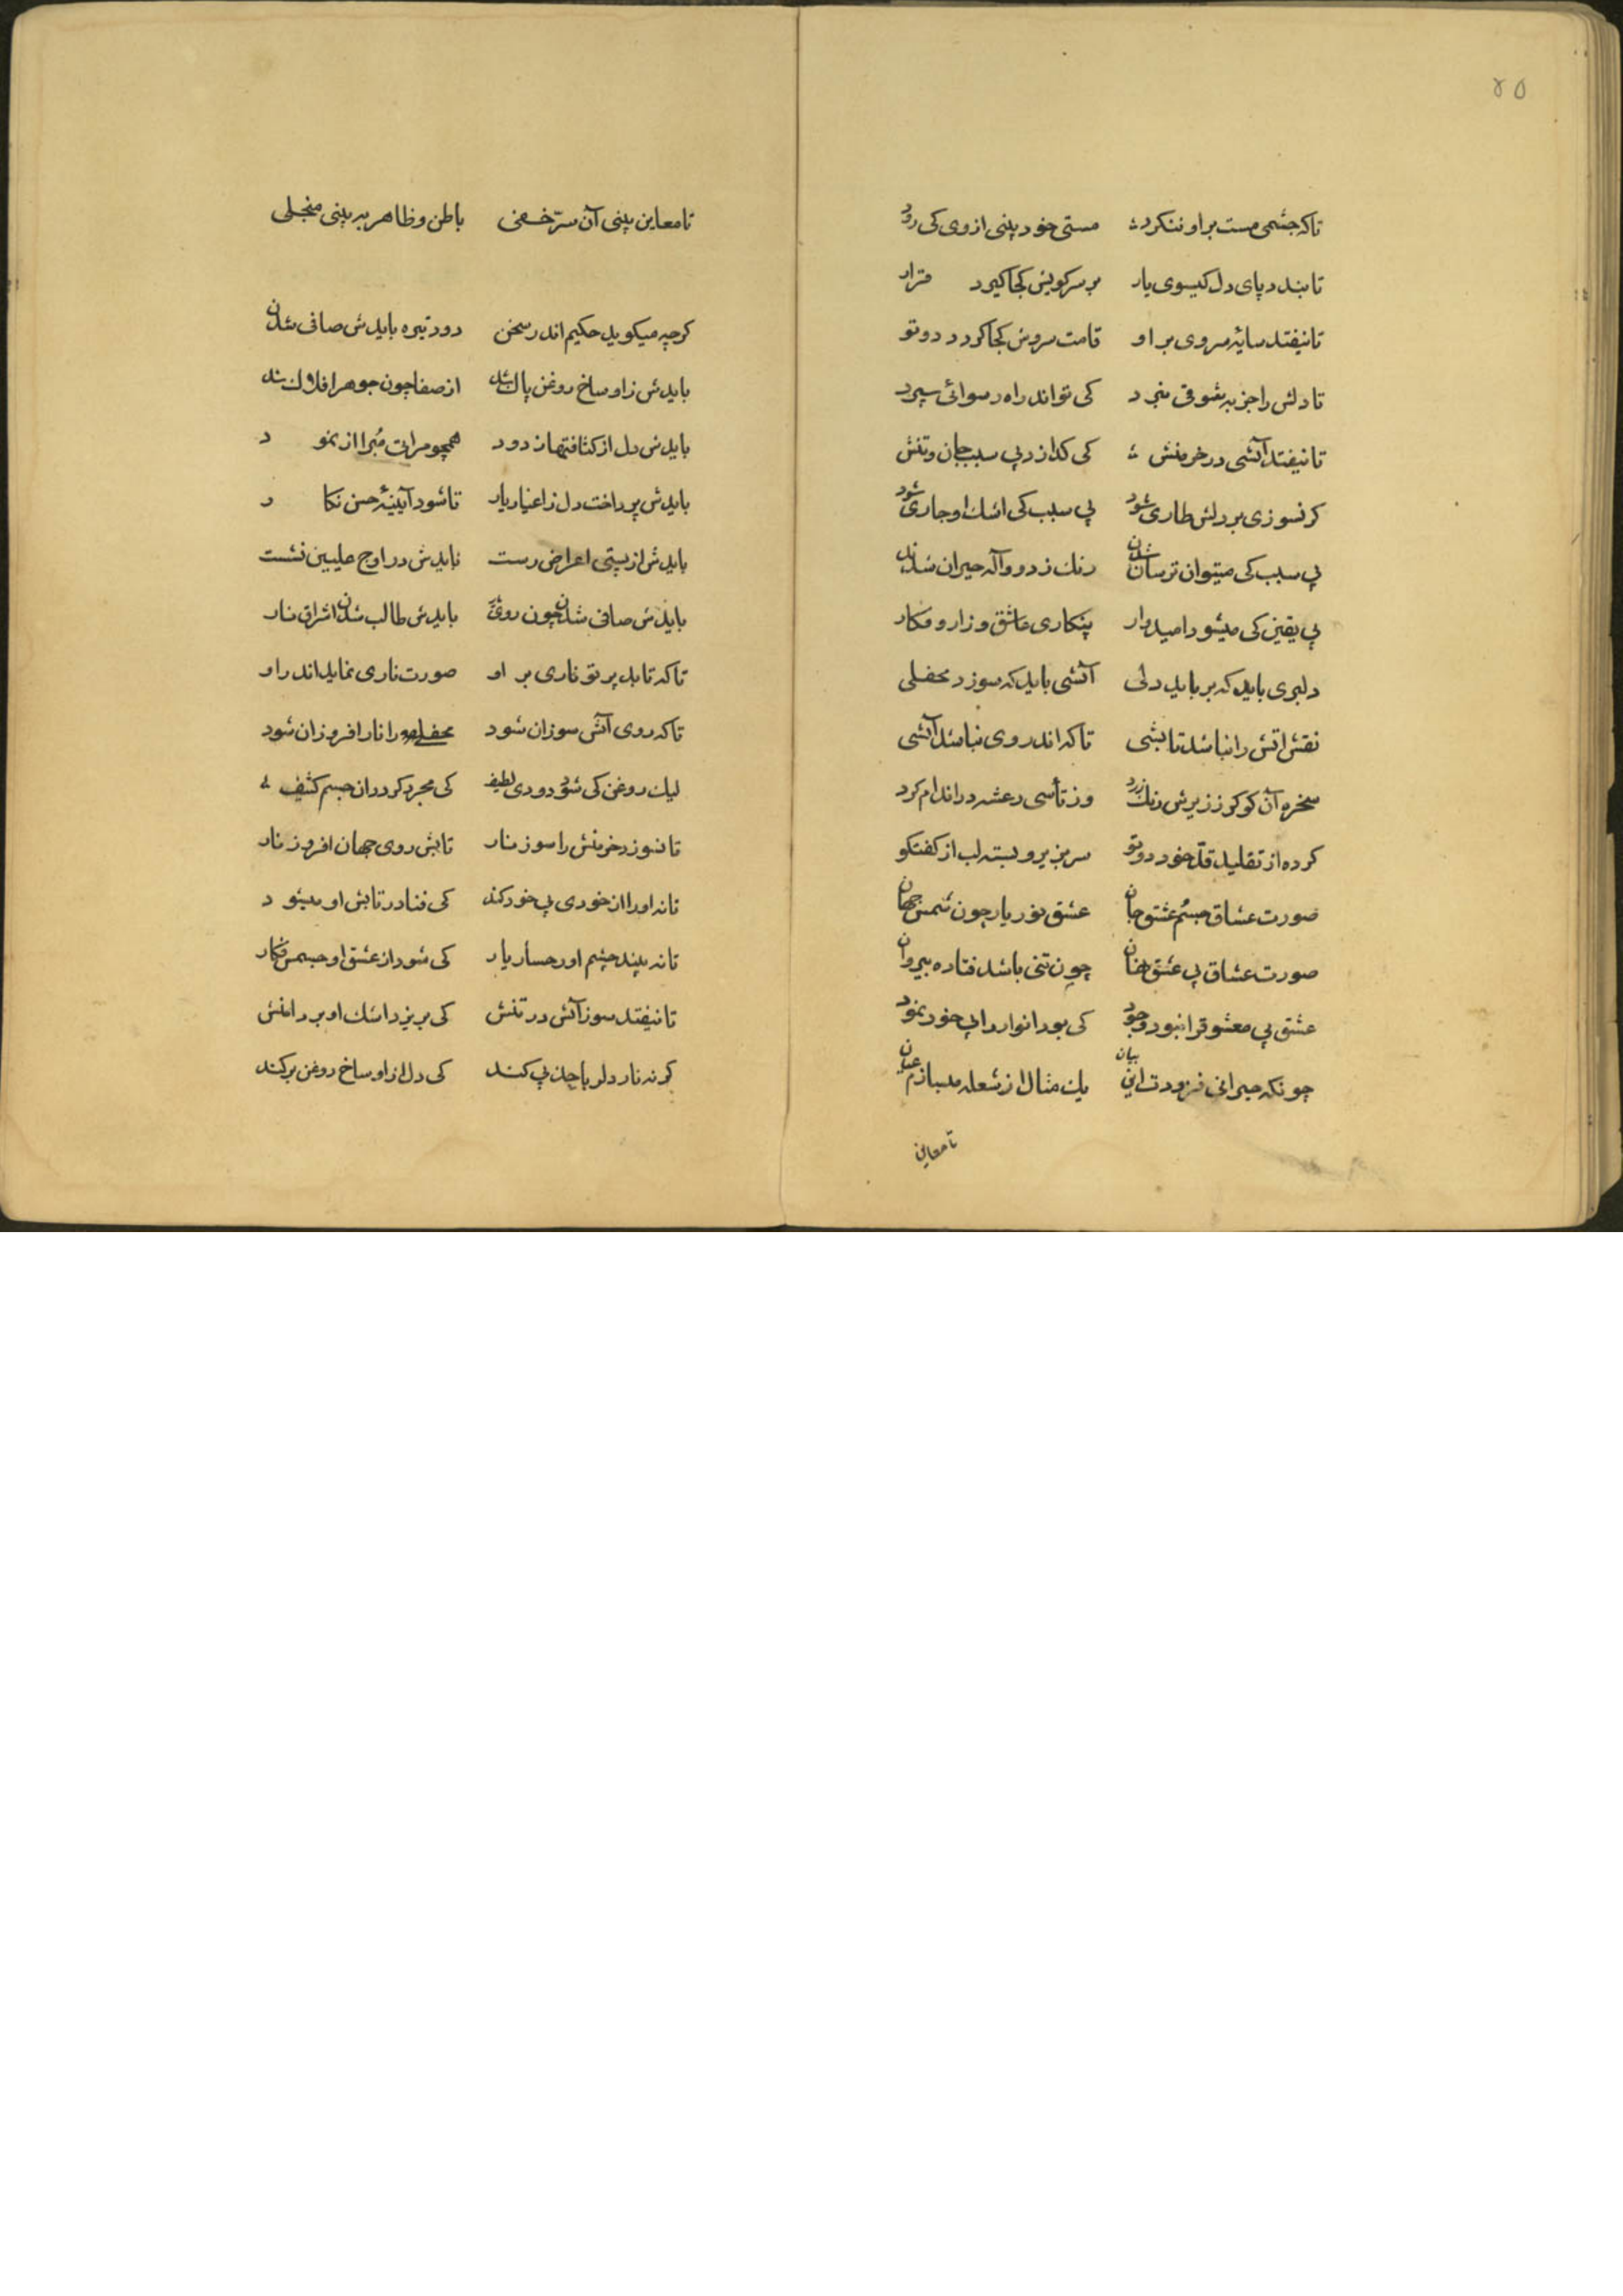 ۴۵
تاکه چشمی مست بر او ننکرد مستی خود بینی از وی کی رود
تا نبندد پای دل کیسوی یار بر سر کویش کجا کیرد قرار
تا نیفتد سایهٔ سروی بر او قامت سروش کجا کردد دوتو
تا دلش را جذبه شوقی نبرد کی تواند راه رسوائی سپرد
تا نیفتد آتشی در خرمنش کی کدازد بی سبب جان و تنش
کر نسوزی بر دلش طاری شود بی سبب کی اشک او جاری شود
بی سبب کی میتوان ترسان شدن رنک زرد و واله حیران شدن
بی یقین کی میشود امیدوار پنکاری عاشق و زار و فکار
دلبری باید که برباید دلی آتشی باید که سوزد محفلی
نقش اتش را نباشد تابشی تا که اندر وی نباشد آتشی
سخره آن کو کو ز زیرش رنک زرد وز تأسی رعشه در اندام کرد
کرده از تقلید قدّ خود دوتو سر بزیر و بسته لب از کفتکو
صورت عشاق جسم عشق جان عشق نور یار چون شمس جهان
صورت عشاق بی عشق نهان چون تنی باشد فتاده بیروان
عشق بی معشوق را نبود وجود کی بود انوار را بی خور نمود
چونکه حیرانی فزودت این بیان یک مثال از شعله میسازم عیان
تا معاین
تا معاین بینی آن سرّ خفی باطن و ظاهر به بینی منجلی
کرچه میکوید حکیم اندر سخن دود تیره بایدش صافی شدن
بایدش ز اوساخ روغن پاک شد از صفا چون جوهر افلاک شد
بایدش دل از کثافتها زدود همچو مرات مُبرا از نمود
بایدش پرداخت دل ز اغیار یار تا شود آیینهٔ حسن نکار
بایدش از پستی اعراض رست بایدش در اوج علیین نشست
بایدش صافی شدن چون روی بایدش طالب شدن اشراق نار
تاکه تابد پرتو ناری بر او صورت ناری نماید اندر او
تاکه روی آتش سوزان شود محفلی را نار افروزان شود
لیک روغن کی شود دودی لطیف کی مجرد کردد ان جسم کثیف
تا نسوزد خرمنش را سوز نار تابش روی جهان افروز نار
تا نه او را از خودی بیخود کند کی فنا در تابش او میشود
تا نه بیند چشم او رخسار یار کی شود از عشق او جسمش فکار
تا نیفتد سوز آتش در تنش کی بریزد اشک او بر دامنش
کر نه نار دلربا جذبی کند کی دل از اوساخ روغن برکند